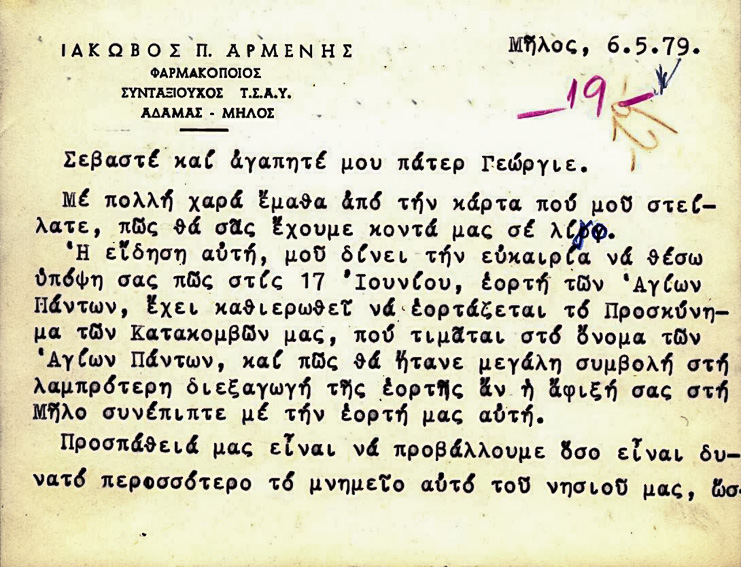 ΙΑΚΩΒΟΣ Π. ΑΡΜΕΝΗΣ
ΦΑΡΜΑΚΟΠΟΙΟΣ
ΣΥΝΤΑΞΙΟΥΧΟΣ Τ.Σ.Α.Υ.
ΑΔΑΜΑΣ - ΜΗΛΟΣ
Μῆλος, 6.5.79.
-19-
Σεβαστέ καί ἀγαπητέ μου πάτερ Γεώργιε.
Μέ πολλή χαρά ἔμαθα ἀπό τήν κάρτα πού μοῦ στεί-
λατε, πῶς θά σᾶς ἔχουμε κοντά μας σέ λίγο.
Ἡ εἴδηση αὐτή, μοῦ δίνει τήν εὐκαιρία νά θέσω
ὑπόψη σας πῶς στίς 17 Ἰουνίου, ἑορτή τῶν Ἁγίων
Πάντων, ἔχει καθιερωθεῖ νά ἑορτάζεται τό Προσκύνη-
μα τῶν Κατακομβῶν μας, πού τιμᾶται στό ὄνομα τῶν
Ἁγίων Πάντων, καί πῶς θά ἤτανε μεγάλη συμβολή στή
λαμπρότερη διεξαγωγή τῆς ἑορτῆς ἄν ἡ ἄφιξή σας στή
Μῆλο συνέπιπτε μέ τήν ἑορτή μας αὐτή.
Προσπάθειά μας εἶναι νά προβάλλουμε ὅσο εἶναι δυ-
νατό περοσσότερο τό μνημεῖο αὐτό τοῦ νησιοῦ μας, ὥσ-